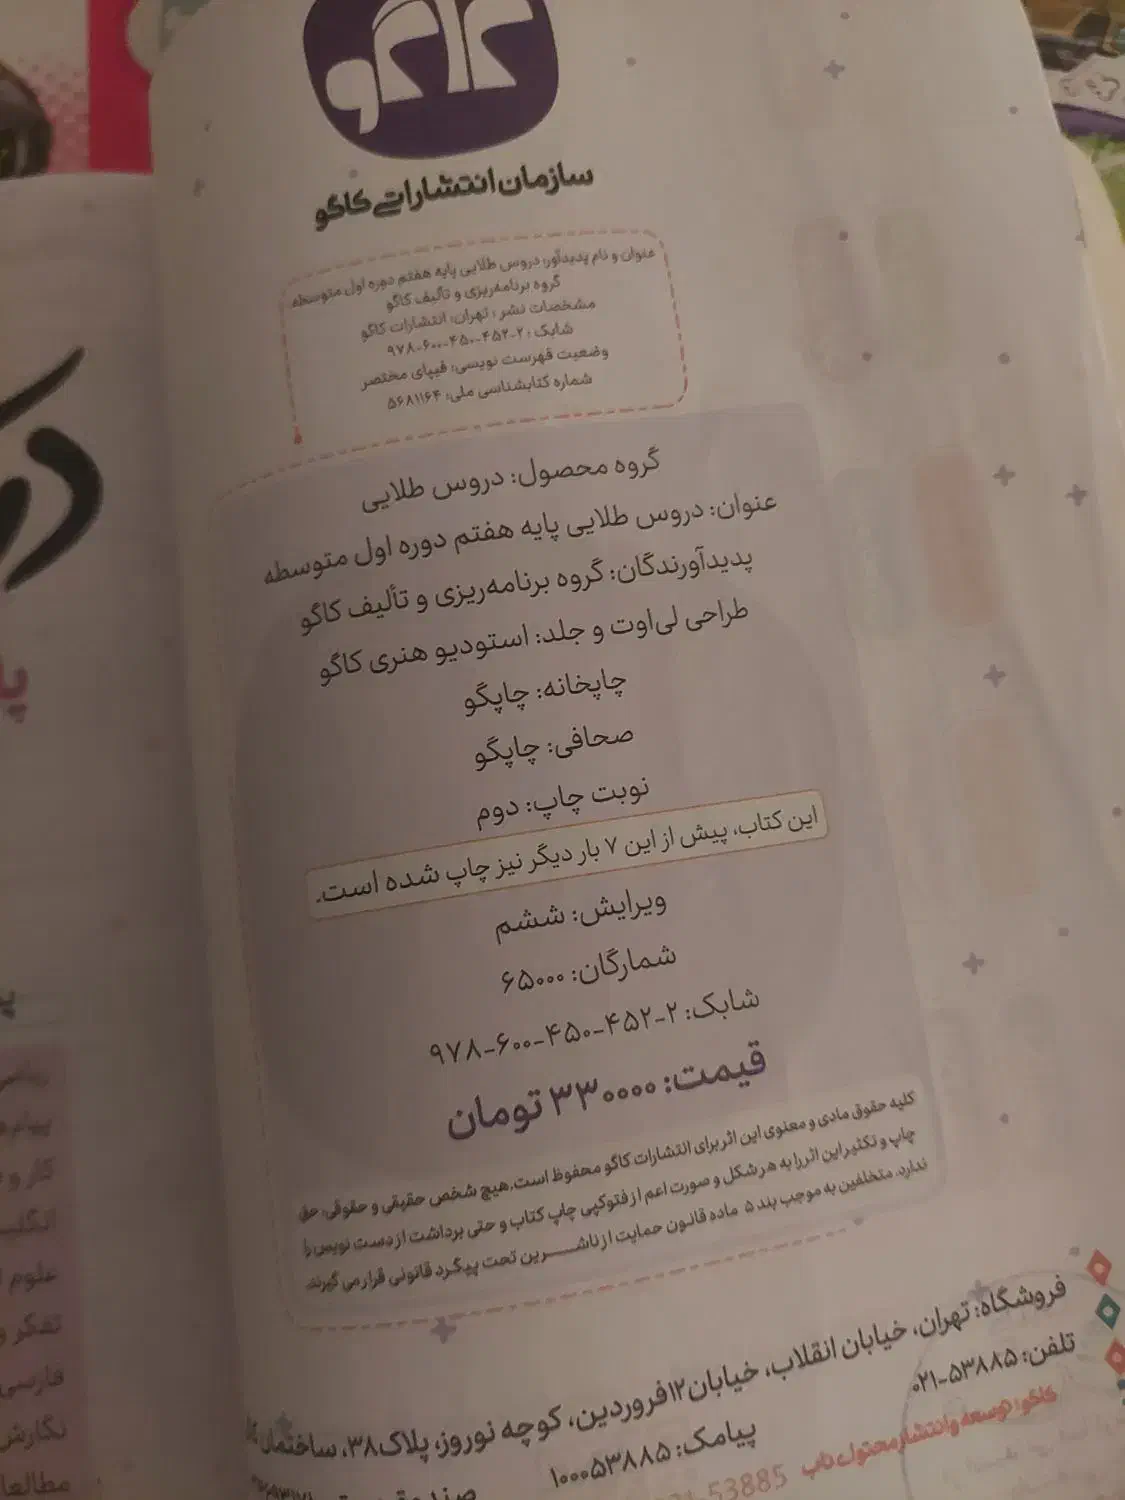 کاگو
سازمان انتشاراتی کاگو
عنوان و نام پدیدآور: دروس طلایی پایه هفتم دوره اول متوسطه
گروه برنامه‌ریزی و تألیف کاگو
مشخصات نشر: تهران: انتشارات کاگو
شابک: ۲-۴۵۲-۴۵۰-۶۰۰-۹۷۸
وضعیت فهرست نویسی: فیپای مختصر
شماره کتابشناسی ملی: ۵۶۸۱۱۶۴
گروه محصول: دروس طلایی
عنوان: دروس طلایی پایه هفتم دوره اول متوسطه
پدیدآورندگان: گروه برنامه‌ریزی و تألیف کاگو
طراحی لی‌اوت و جلد: استودیو هنری کاگو
چاپخانه: چاپگو
صحافی: چاپگو
نوبت چاپ: دوم
این کتاب، پیش از این ۷ بار دیگر نیز چاپ شده است.
ویرایش: ششم
شمارگان: ۶۵۰۰۰
شابک: ۲-۴۵۲-۴۵۰-۶۰۰-۹۷۸
قیمت: ۳۳۰۰۰۰ تومان
کلیه حقوق مادی و معنوی این اثر برای انتشارات کاگو محفوظ است. هیچ شخص حقیقی و حقوقی، حق
چاپ و تکثیر این اثر را به هر شکل و صورت اعم از فتوکپی چاپ کتاب و حتی برداشت از دست نویس را
ندارد. متخلفین به موجب بند ۵ ماده قانون حمایت از ناشــــرین تحت پیگرد قانونی قرار می گیرند.
فروشگاه: تهران، خیابان انقلاب، خیابان ۱۲فروردین، کوچه نوروز، پلاک۳۸، ساختمان
تلفن: ۵۳۸۸۵-۰۲۱
پیامک: ۱۰۰۰۵۳۸۸۵
کاگو؛ توسعه و انتشار محتوای ناب
53885
علوم
تفکر و
فارسی
نگارش